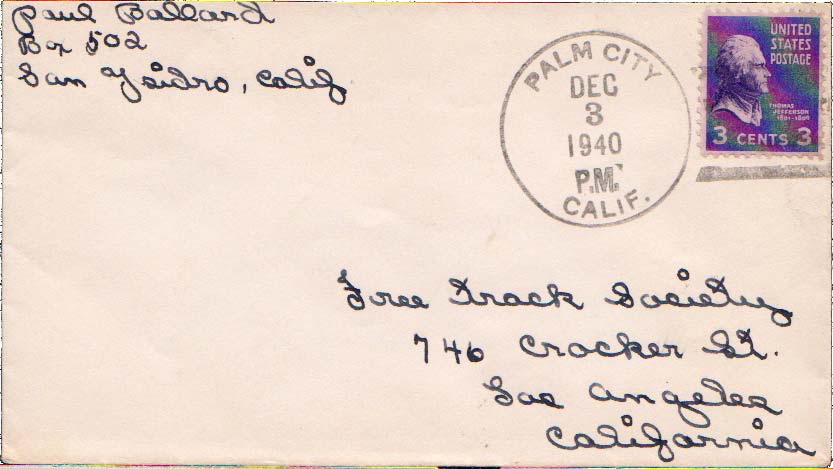 Paul Ballard
Box 502
San Ysidro, Calif
PALM CITY
DEC
3
1940
P.M.
CALIF.
UNITED
STATES
POSTAGE
THOMAS
JEFFERSON
1801-1809
3 CENTS 3
Free Track Society
746 Crocker St.
Los Angeles
California